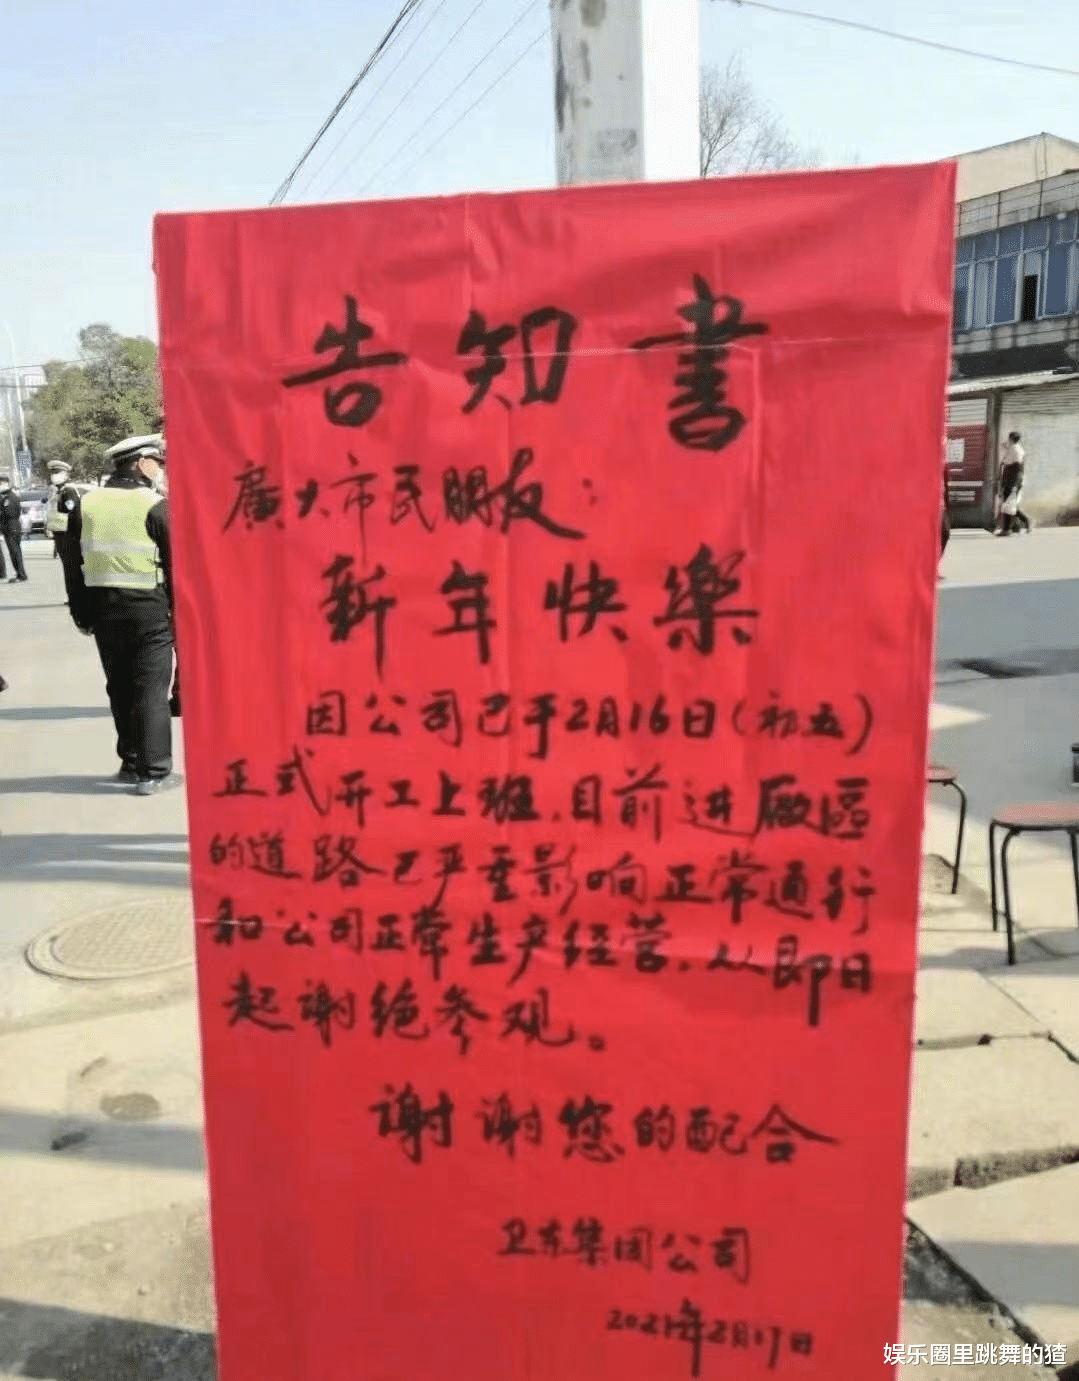 告知書
廣大市民朋友：
新年快樂
因公司已于2月16日（初五）
正式开工上班，目前进厰區
的道路已严重影响正常通行
和公司正常生产经营，从即日
起谢绝参观。
谢谢您的配合
卫东集团公司
2021年2月17日
娱乐圈里跳舞的猹